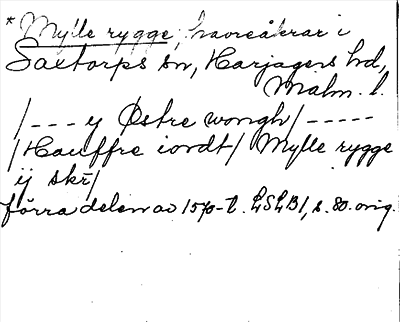 *Mylle rygge, havreåkrar i
Saxtorps sn, Harjagers hd,
Malm. l.
/--- y Østre wongh/-----
/Hauffre iordt/ Mylle rygge
ij skr̄/
förra delen av 1570-t. LSLB1, s. 80. orig.